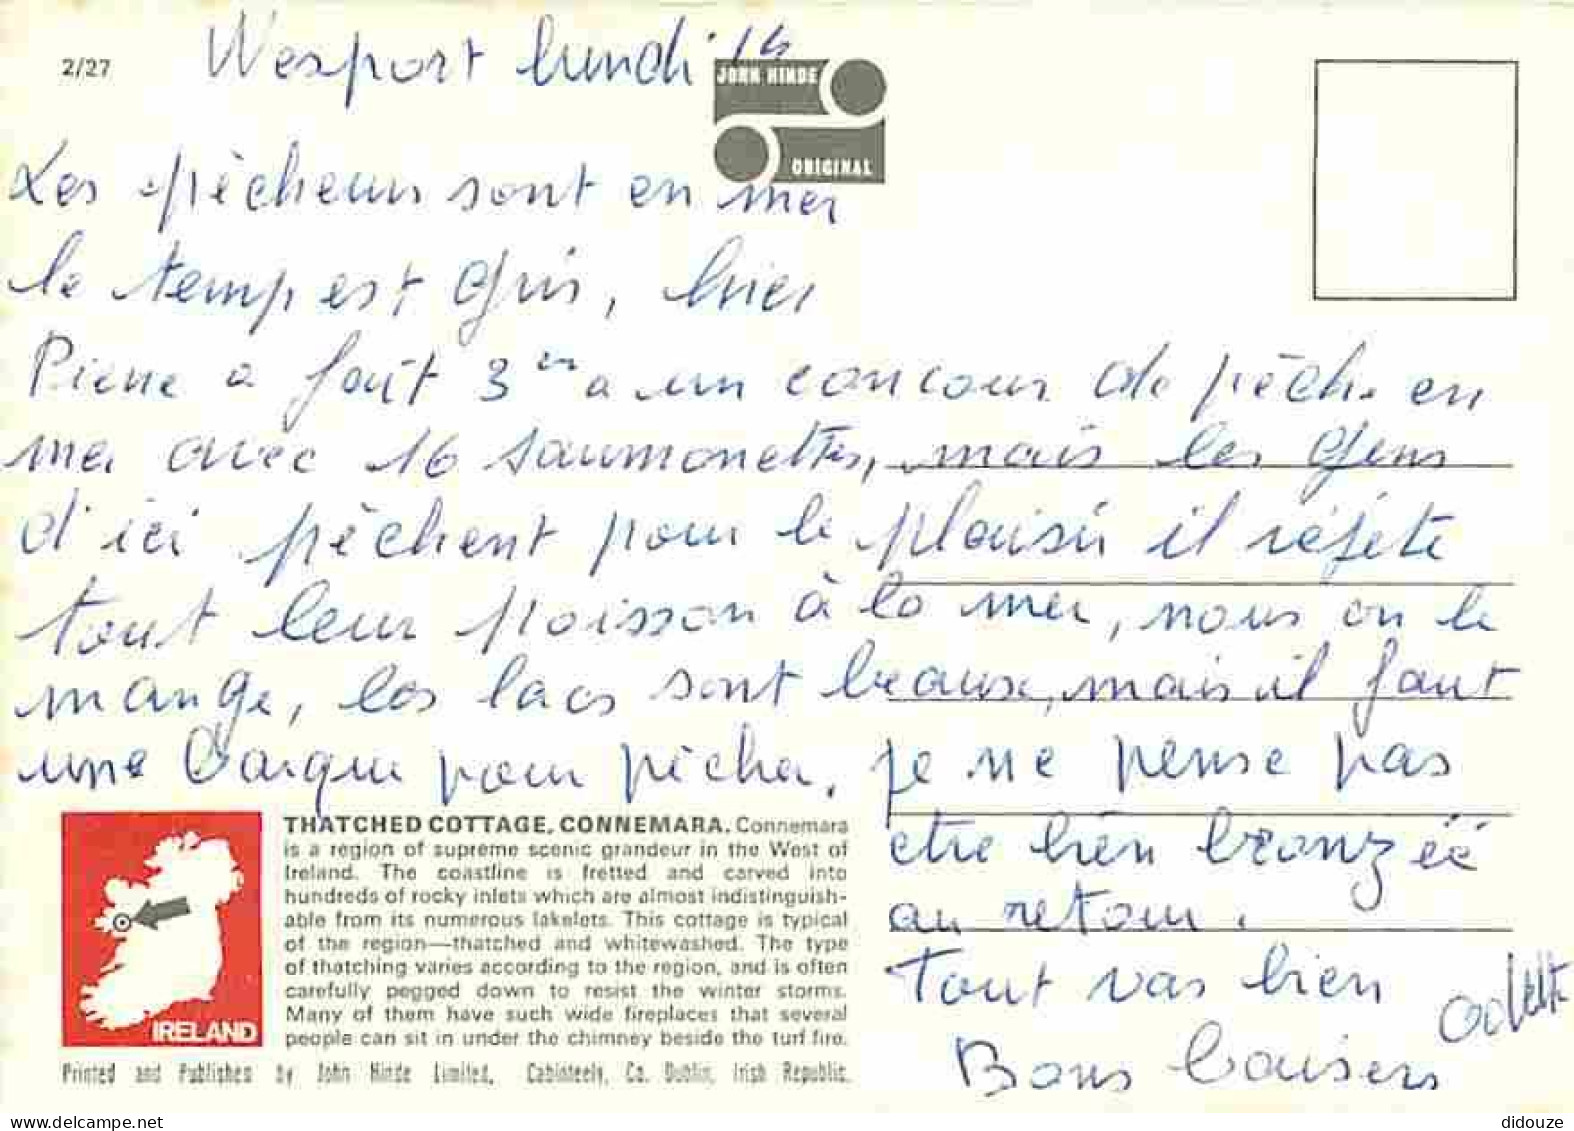 2/27
Wesport lundi 14
JOHN HINDE
ORIGINAL
Les pêcheurs sont en mer
le temp est gris, hier
Pierre a fait 3 a un concour de pêche en
mer avec 16 saumonettes, mais les gens
d'ici pêchent pour le plaisir il réjete
tout leur poisson à la mer, nous on le
mange, les lacs sont beaux, mais il faut
une barque pour pêcher. je ne pense pas
etre bien bronzéé
au retour.
Tout vas bien
Odette
Bons baisers
THATCHED COTTAGE, CONNEMARA. Connemara
is a region of supreme scenic grandeur in the West of
Ireland. The coastline is fretted and carved into
hundreds of rocky inlets which are almost indistinguish-
able from its numerous lakelets. This cottage is typical
of the region—thatched and whitewashed. The type
of thatching varies according to the region, and is often
carefully pegged down to resist the winter storms.
Many of them have such wide fireplaces that several
people can sit in under the chimney beside the turf fire.
IRELAND
Printed and Published by John Hinde Limited, Cabinteely, Co. Dublin, Irish Republic.
didouze